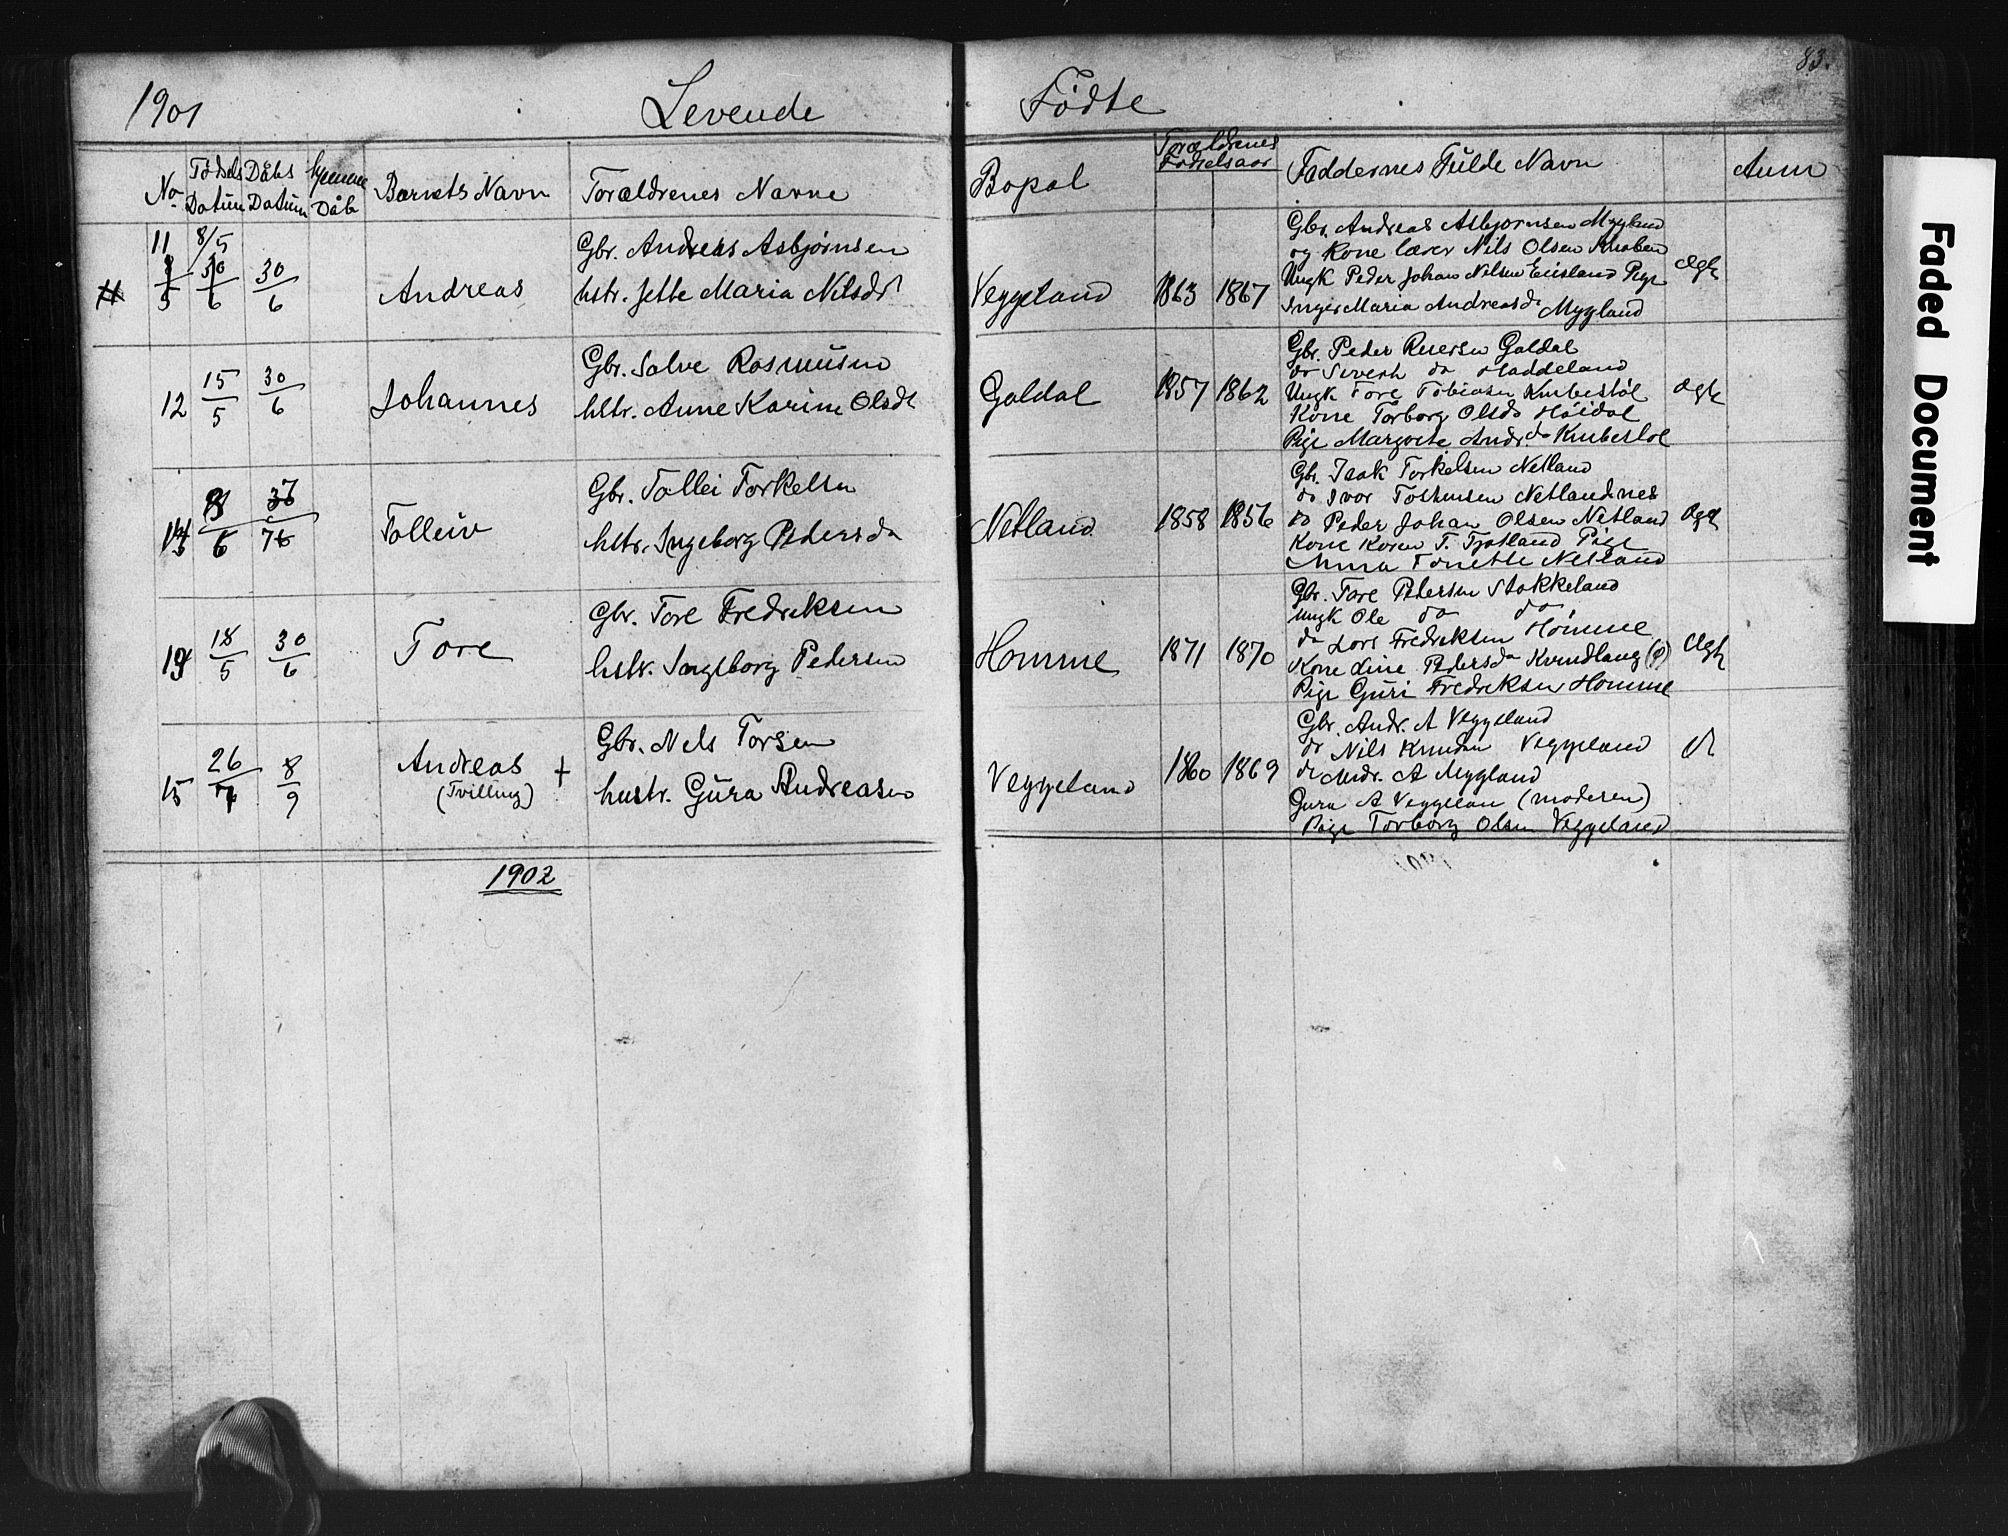 83.
1901 Levende Födte
No Födsels Datum Dåbs Datum hjemme Dåb Barnets Navn Forældrenes Navne Bopæl Forældrenes Fødselsaar Faddernes Fulde Navn Anm
11 8/5 30/6 Andreas
Gbr. Andreas Asbjørnsen
hstr. Jette Maria Nilsdt
Veggeland 1863 1867
Gbr. Andreas Asbjørnsen Mygland
og Kone lærer Nils Olsen Knaben
Ungk Peder Johan Nilsen Pige
Inger Maria Andreasd. Mygland
Ægte
12 15/5 30/6 Johannes
Gbr. Salve Rasmusen
hstr. Anne Karine Olsdt
Galdal 1857 1862
Gbr. Peder Galdal
do Sivert do Haddeland
Ungk Tore Tobiasen Knibestöl
Kone Torborg Olsd. Höidal
Pige Margrete Andr. da Knibestol
Ægte
14 6 7 Tolleiv
Gbr. Tollei Torkelsen
hstr. Ingeborg Pedersda
Netland 1858 1856
Gbr. Isak Torkelsen Netland
do Ivor Netlandsnes
do Peder Johan Olsen Netland
Kone Karen T. Tjotland Pige
Anna Tonette Netland
Ægte
13 18/5 30/6 Tore
Gbr. Tore Fredriksen
hstr. Ingeborg Pedersen
Homme 1871 1870
Gbr. Tore Pedersen Stakkeland
Ungk Ole do do
do Lars Fredriksen Homme
Kone Line Pedersda
Pige Guri Fredriksen Homme
Ægte
15 26/7 8/9 Andreas +
(Tvilling)
Gbr. Nels Torsen
hustr. Gura Andreasen
Veggeland 1860 1869
Gbr. Andr. A Veggeland
do Nils Knudsen Veggeland
do Andr. A Mygland
Gura A Veggelan (moderen)
Pige Torborg Olsen Veggeland
1902
Faded Document